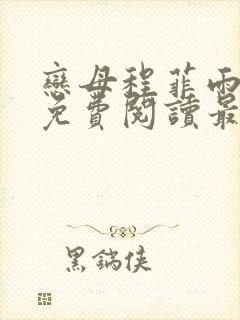 戀母程菲雨
免費閱讀最
黑鍋俠